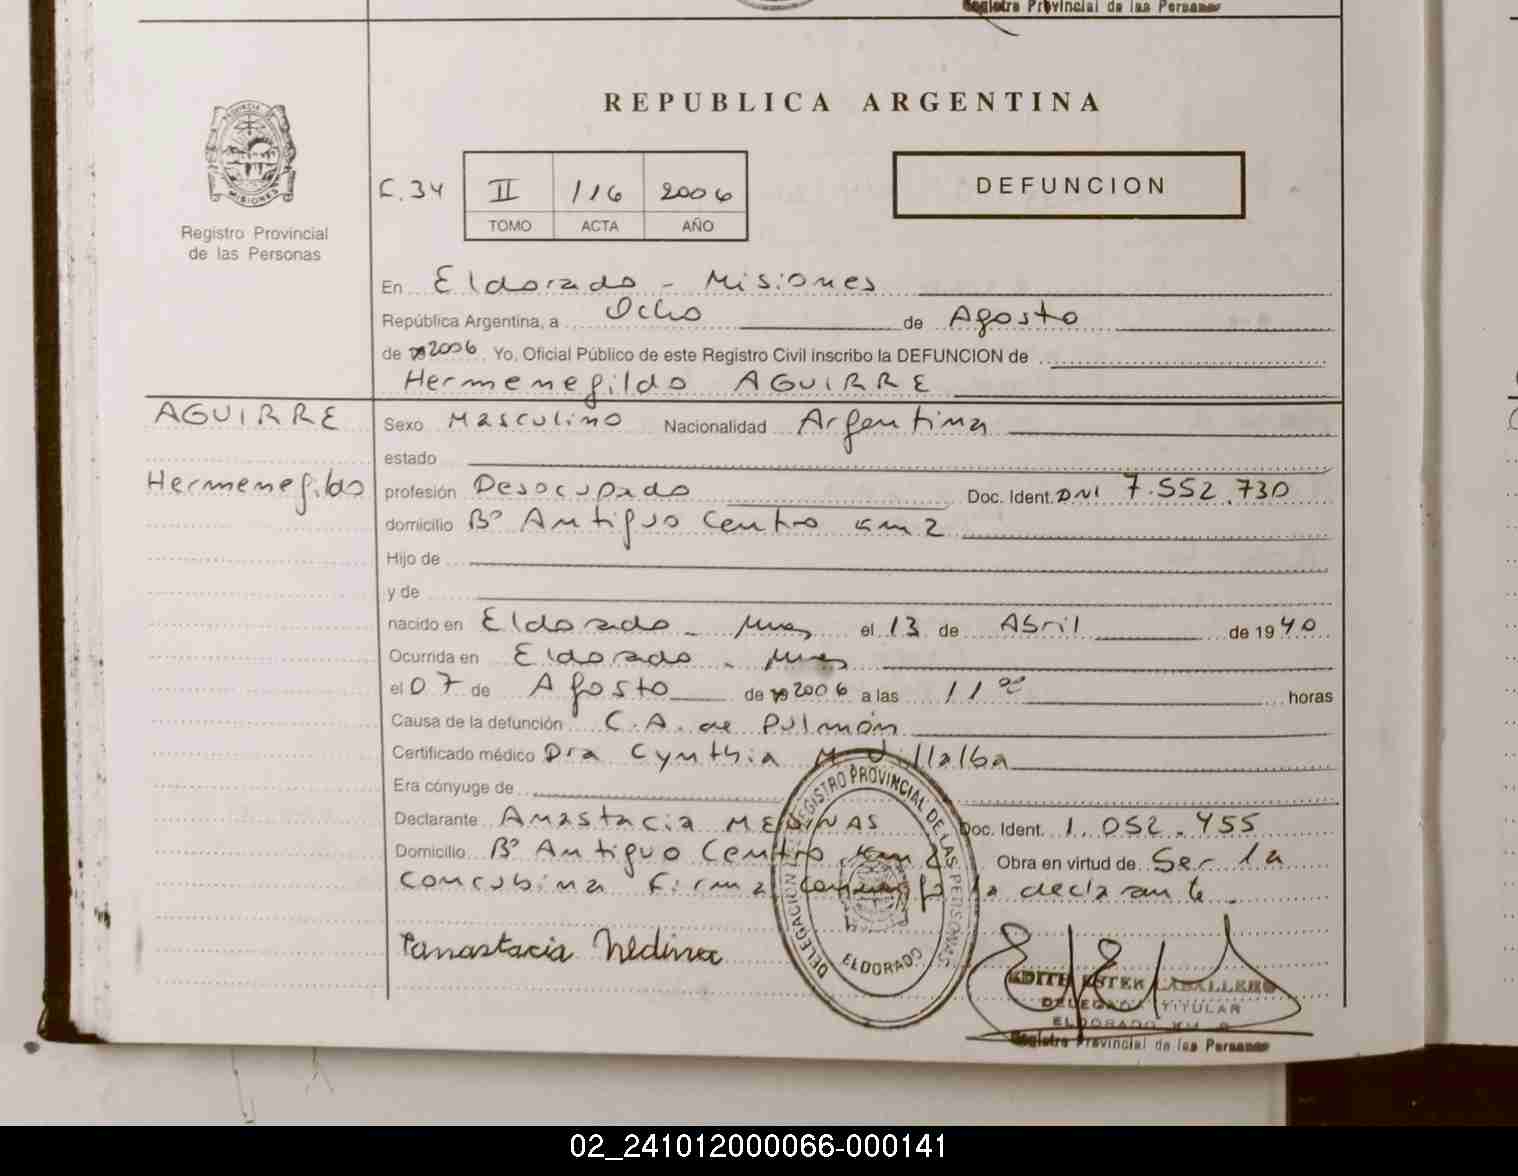 Registro Provincial de las Personas
REPUBLICA ARGENTINA
PROVINCIA
MISIONES
Registro Provincial
de las Personas
C.34 II 116 2006
TOMO ACTA AÑO
DEFUNCION
En Eldorado - Misiones
República Argentina, a Ocho de Agosto
de 2006. Yo, Oficial Público de este Registro Civil inscribo la DEFUNCION de
Hermenegildo AGUIRRE
AGUIRRE
Hermenegildo
Sexo Masculino Nacionalidad Argentina
estado
profesión Desocupado Doc. Ident. DNI 7.552.730
domicilio Bº Antiguo Centro km 2
Hijo de
y de
nacido en Eldorado - Mnes el 13 de Abril de 1940
Ocurrida en Eldorado - Mnes
el 07 de Agosto de 2006 a las 11 00 horas
Causa de la defunción C.A. de Pulmón
Certificado médico Dra Cynthia M Villalba
Era cónyuge de
Declarante Anastacia MEDINAS Doc. Ident. 1.052.455
Domicilio Bº Antiguo Centro km 2 Obra en virtud de Ser la
concubina Firma conmigo la declarante.
Anastacia Medina
DELEGACION REGISTRO PROVINCIAL DE LAS PERSONAS
ELDORADO
EDITH ESTER CABALLERO
DELEGADA TITULAR
ELDORADO KM
Registro Provincial de las Personas
02_241012000066-000141